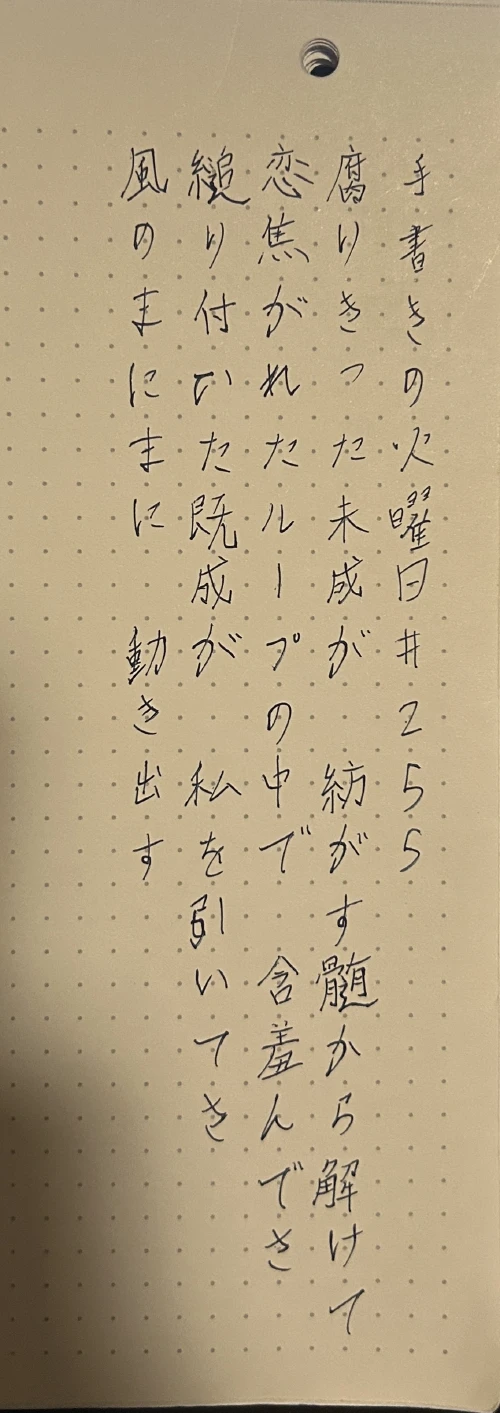 手書きの火曜日#255
腐りきった未成が 紡がす髄から解けて
恋焦がれたループの中で 含羞んでさ
縋り付いた既成が 私を引いてさ
風のまにまに 動き出す